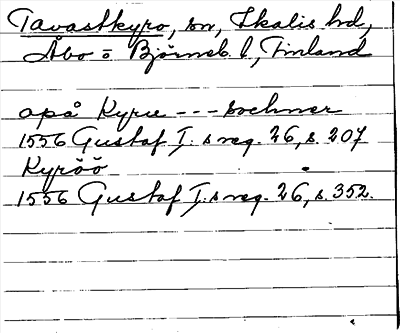 Tavastkyro, sn, Ikalis hd,
Åbo o Björneb. l, Finland
apå Kyru --- sochner
1556 Gustaf I:s reg. 26, s. 207
Kyröö
1556 Gustaf I:s reg. 26, s. 352.